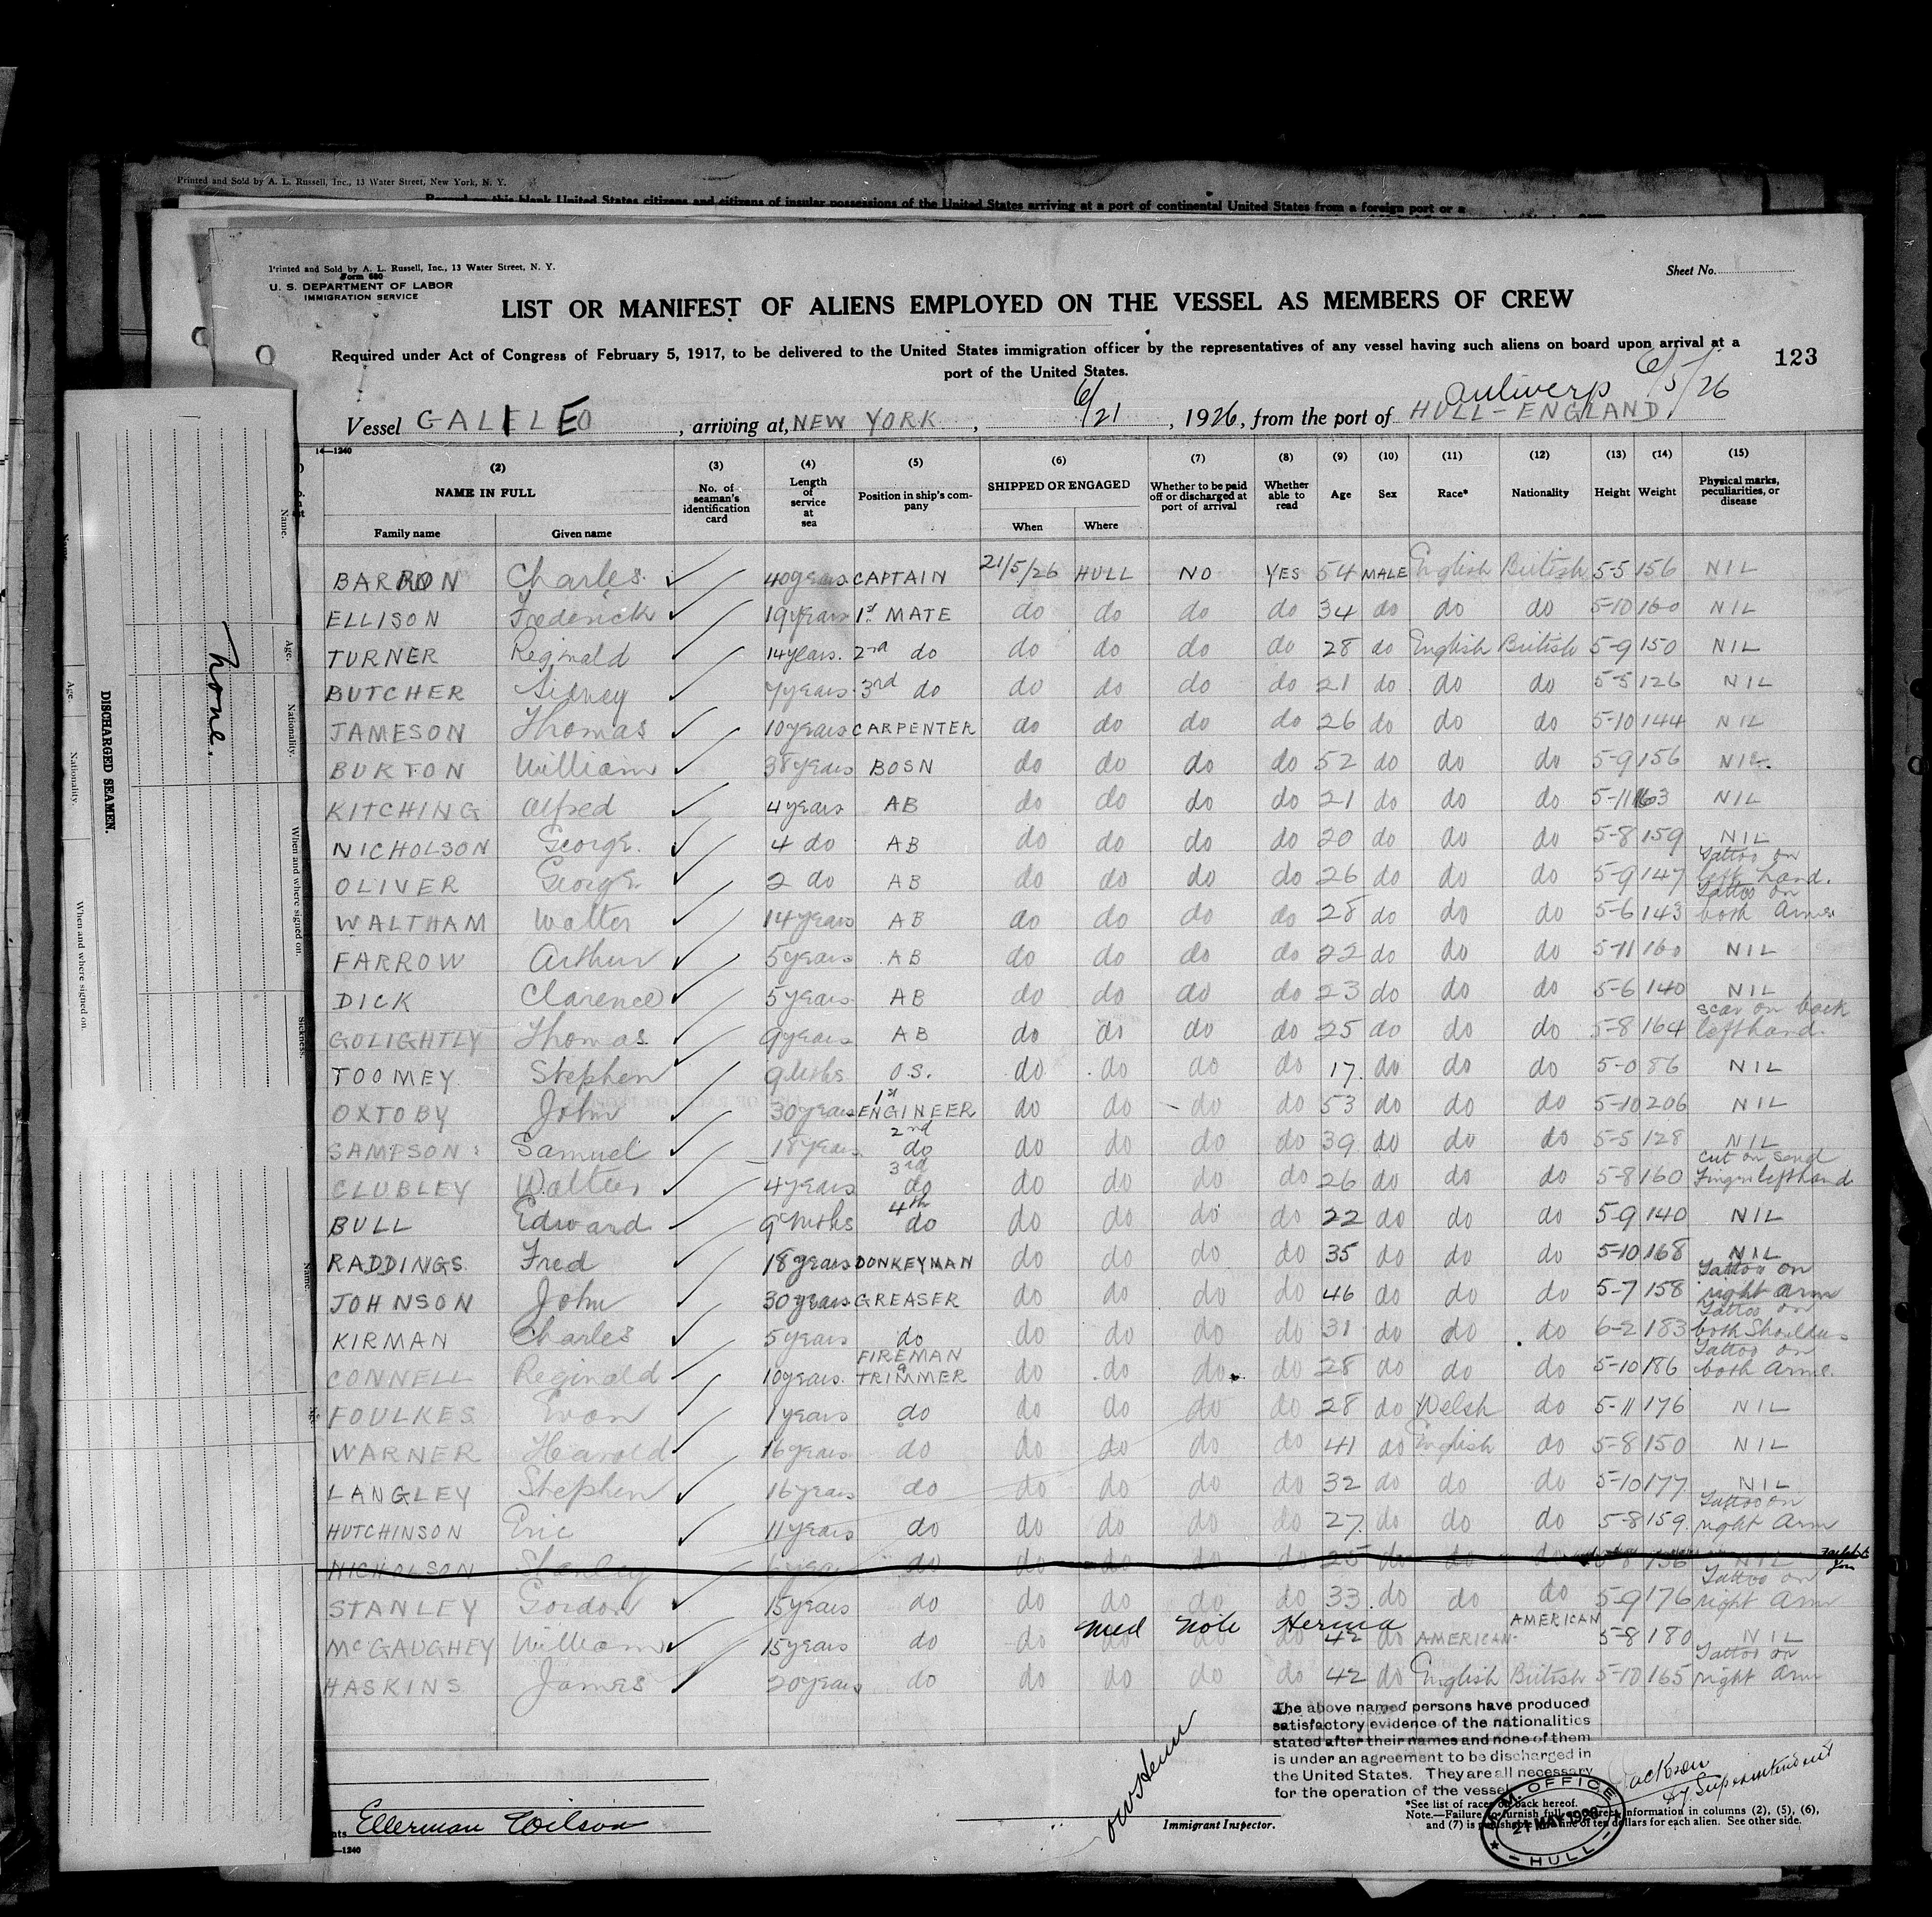 Printed and Sold by A. L. Russell, Inc., 13 Water Street, New York, N. Y.
Record on this blank United States citizens and citizens of insular possessions of the United States arriving at a port of continental United States from a foreign port or a
Printed and Sold by A. L. Russell, Inc., 13 Water Street, N. Y.
Form 680
U. S. DEPARTMENT OF LABOR
IMMIGRATION SERVICE
Sheet No.
LIST OR MANIFEST OF ALIENS EMPLOYED ON THE VESSEL AS MEMBERS OF CREW
Required under Act of Congress of February 5, 1917, to be delivered to the United States immigration officer by the representatives of any vessel having such aliens on board upon arrival at a
port of the United States.
123
Antwerp 6/5/26
Vessel GALILEO, arriving at, NEW YORK, 6/21, 1926, from the port of HULL-ENGLAND
14—1240
(2) (3) (4) (5) (6) (7) (8) (9) (10) (11) (12) (13) (14) (15)
NAME IN FULL No. of seaman's identification card Length of service at sea Position in ship's company SHIPPED OR ENGAGED Whether to be paid off or discharged at port of arrival Whether able to read Age Sex Race* Nationality Height Weight Physical marks, peculiarities, or disease
Family name Given name When Where
BARRON Charles ✓ 40 years CAPTAIN 21/5/26 HULL NO YES 54 MALE English British 5-5 156 NIL
ELLISON Frederick ✓ 19 years 1st MATE do do do do 34 do do do 5-10 160 NIL
TURNER Reginald ✓ 14 years. 2nd do do do do do 28 do English British 5-9 150 NIL
BUTCHER Sidney ✓ 7 years 3rd do do do do do 21 do do do 5-5 126 NIL
JAMESON Thomas ✓ 10 years CARPENTER do do do do 26 do do do 5-10 144 NIL
BURTON William ✓ 38 years BOSN do do do do 52 do do do 5-9 156 NIL
KITCHING Alfred ✓ 4 years AB do do do do 21 do do do 5-11 163 NIL
NICHOLSON George ✓ 4 do AB do do do do 20 do do do 5-8 159 NIL
OLIVER George ✓ 2 do AB do do do do 26 do do do 5-9 147 Tattoo on left hand.
WALTHAM Walter ✓ 14 years AB do do do do 28 do do do 5-6 143 Tattoo on both Arms
FARROW Arthur ✓ 5 years AB do do do do 22 do do do 5-11 160 NIL
DICK Clarence ✓ 5 years AB do do do do 23 do do do 5-6 140 NIL
GOLIGHTLY Thomas ✓ 9 years AB do do do do 25 do do do 5-8 164 scar on back left hand.
TOOMEY Stephen ✓ 9 Mths O.S. do do do do 17 do do do 5-0 86 NIL
OXTOBY John ✓ 30 years 1st ENGINEER do do do do 53 do do do 5-10 206 NIL
SAMPSON Samuel ✓ 18 years 2nd do do do do do 39 do do do 5-5 128 NIL
CLUBLEY Walter ✓ 4 years 3rd do do do do do 26 do do do 5-8 160 cut on send Finger left hand
BULL Edward ✓ 9 Mths 4th do do do do do 22 do do do 5-9 140 NIL
RADDINGS Fred ✓ 18 years DONKEYMAN do do do do 35 do do do 5-10 168 NIL
JOHNSON John ✓ 30 years GREASER do do do do 46 do do do 5-7 158 Tattoo on right arm
KIRMAN Charles ✓ 5 years do do do do do 31 do do do 6-2 183 Tattoo on both Shoulders
CONNELL Reginald ✓ 10 years. FIREMAN & TRIMMER do do do do 28 do do do 5-10 186 Tattoo on both arms.
FOULKES Evan ✓ 1 years do do do do do 28 do Welsh do 5-11 176 NIL
WARNER Harold ✓ 16 years do do do do do 41 do English do 5-8 150 NIL
LANGLEY Stephen ✓ 16 years do do do do do 32 do do do 5-10 177 NIL
HUTCHINSON Eric ✓ 11 years do do do do do 27 do do do 5-8 159 Tattoo on right Arm
NICHOLSON Stanley years do do do do do 25 do do do 5-8 136 NIL
STANLEY Gordon ✓ 15 years do do do do do 33 do do do 5-9 176 Tattoo on right Arm
McGAUGHEY William ✓ 15 years do do do do do 42 do AMERICAN AMERICAN 5-8 180 NIL
Med Note Hernia
HASKINS James ✓ 20 years do do do do do 42 do English British 5-10 165 Tattoo on right arm
The above named persons have produced
satisfactory evidence of the nationalities
stated after their names and none of them
is under an agreement to be discharged in
the United States. They are all necessary
for the operation of the vessel
Jackson
Superintendent
*See list of races on back hereof.
Note.—Failure to furnish full or correct information in columns (2), (5), (6),
and (7) is punishable by a fine of ten dollars for each alien. See other side.
OFFICE
21 MAY 1926
HULL
Ellerman Wilson
Immigrant Inspector.
—1240
None.
DISCHARGED SEAMEN.
Name. Age. Nationality. When and where signed on. Sickness.
Name.
Age. Nationality. When and where signed on.